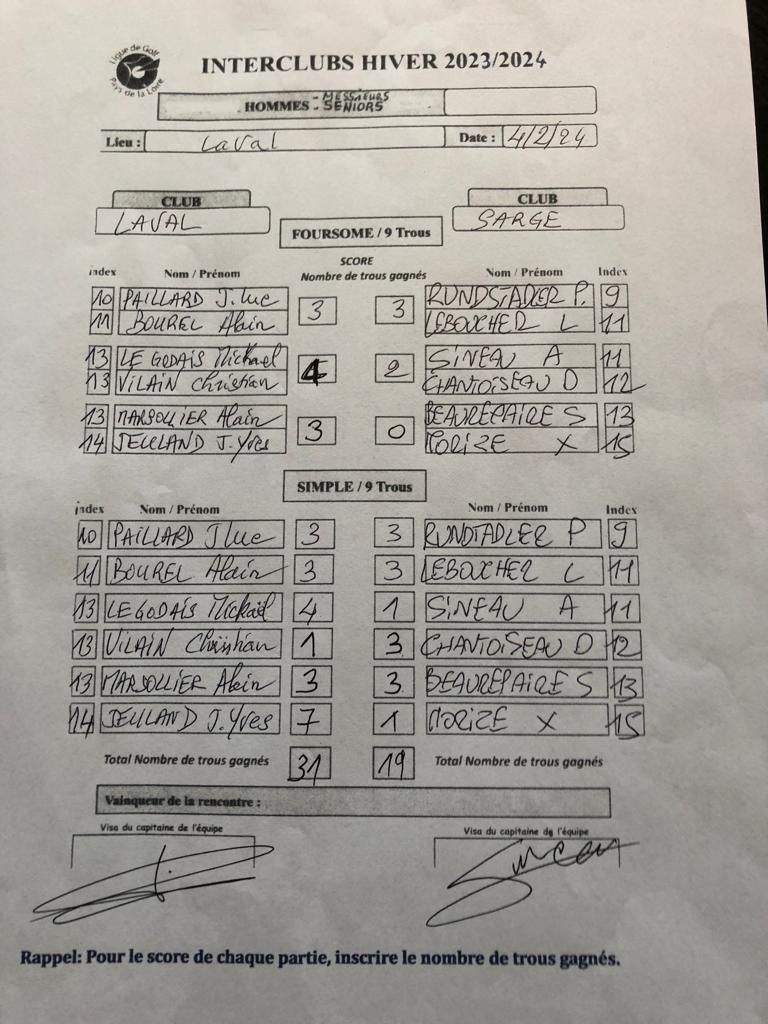 Ligue de Golf
Pays de la Loire
INTERCLUBS HIVER 2023/2024
HOMMES - MESSIEURS - SENIORS
Lieu : Laval Date : 4/2/24
CLUB CLUB
LAVAL SARGE
FOURSOME / 9 Trous
SCORE
index Nom / Prénom Nombre de trous gagnés Nom / Prénom Index
10 PAILLARD J.luc 3 3 RUNDSTADLER P. 9
11 BOUREL Alain LEBOUCHER L 11
13 LE GODAIS Mickael 4 2 SINEAU A 11
13 VILAIN Christian CHANTOISEAU D 12
13 MARSOLLIER Alain 3 0 BEAUREPAIRE S 13
14 JEULAND J.Yves MORIZE X 15
SIMPLE / 9 Trous
index Nom / Prénom Nom / Prénom Index
10 PAILLARD J luc 3 3 RUNDTADLER P 9
11 BOUREL Alain 3 3 LEBOUCHER L 11
13 LE GODAIS Mickaël 4 1 SINEAU A 11
13 VILAIN Christian 1 3 CHANTOISEAU D 12
13 MARSOLLIER Alain 3 3 BEAUREPAIRE S 13
14 JEULAND J.Yves 7 1 MORIZE X 15
Total Nombre de trous gagnés 31 19 Total Nombre de trous gagnés
Vainqueur de la rencontre :
Visa du capitaine de l'équipe Visa du capitaine de l'équipe
Rappel: Pour le score de chaque partie, inscrire le nombre de trous gagnés.